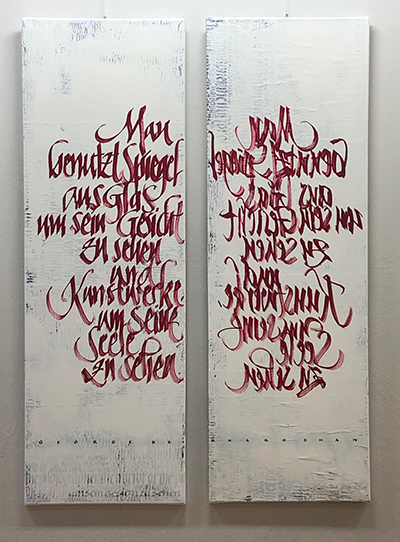 Man
benutzt Spiegel
aus Glas
um sein Gesicht
zu sehen
und
Kunstwerke
um seine
Seele
zu sehen
GEORGE B.
SHAW
Man
benutzt Spiegel
aus Glas
um sein Gesicht
zu sehen
und
Kunstwerke
um seine
Seele
zu sehen